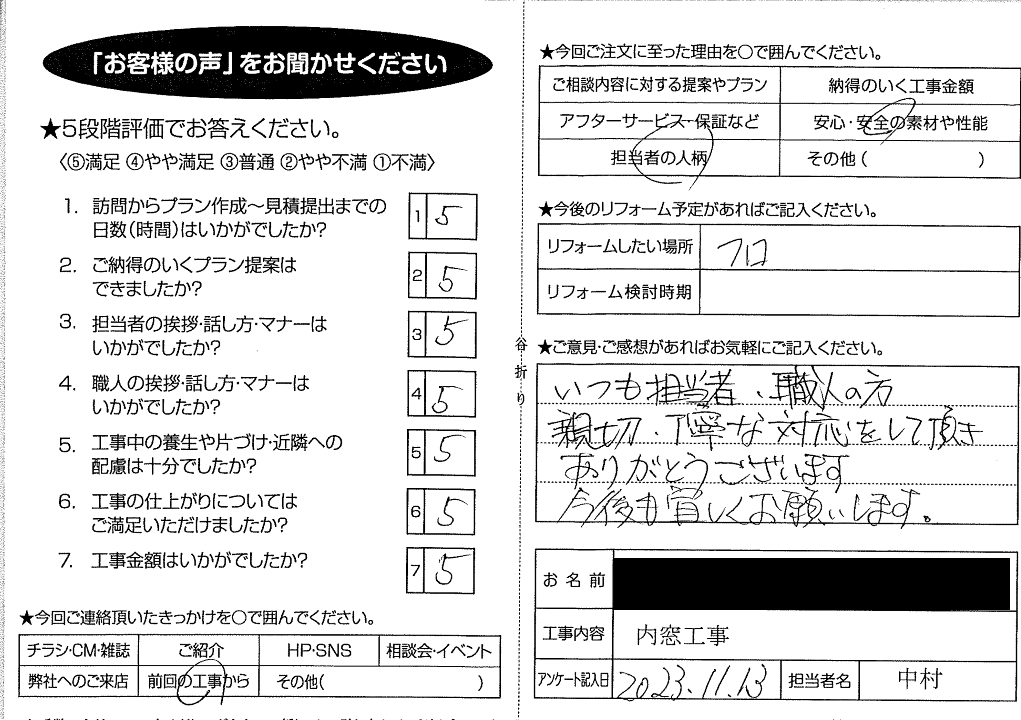 「お客様の声」をお聞かせください
★5段階評価でお答えください。
〈⑤満足 ④やや満足 ③普通 ②やや不満 ①不満〉
1. 訪問からプラン作成～見積提出までの
日数(時間)はいかがでしたか?
1 5
2. ご納得のいくプラン提案は
できましたか?
2 5
3. 担当者の挨拶・話し方・マナーは
いかがでしたか?
3 5
4. 職人の挨拶・話し方・マナーは
いかがでしたか?
4 5
5. 工事中の養生や片づけ・近隣への
配慮は十分でしたか?
5 5
6. 工事の仕上がりについては
ご満足いただけましたか?
6 5
7. 工事金額はいかがでしたか?
7 5
★今回ご連絡頂いたきっかけを○で囲んでください。
チラシ・CM・雑誌 ご紹介 HP・SNS 相談会・イベント
弊社へのご来店 前回の工事から その他( )
谷折り
★今回ご注文に至った理由を○で囲んでください。
ご相談内容に対する提案やプラン 納得のいく工事金額
アフターサービス・保証など 安心・安全の素材や性能
担当者の人柄 その他( )
★今後のリフォーム予定があればご記入ください。
リフォームしたい場所 フロ
リフォーム検討時期
★ご意見・ご感想があればお気軽にご記入ください。
いつも担当者、職人の方
親切、丁寧な対応をして頂き
ありがとうございます
今後も宜しくお願いします。
お名前
工事内容 内窓工事
アンケート記入日 2023.11.13 担当者名 中村